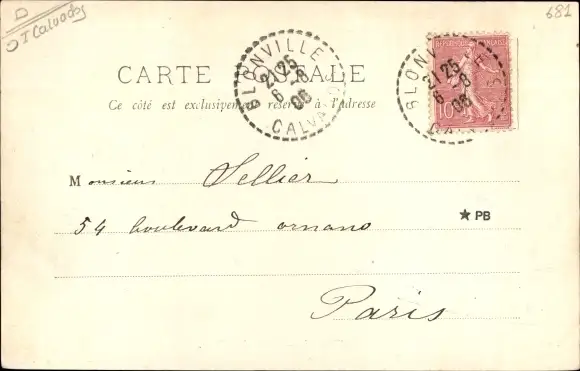 D
DT Calvados
681
CARTE POSTALE
Ce côté est exclusivement réservé à l'adresse
BLONVILLE
21 25
6 -8
06
CALVADOS
REPUBLIQUE FRANÇAISE
10
BLONVILLE
21 25
6 -8
06
CALVADOS
Monsieur Sellier
54 boulevard ornano
★ PB
Paris